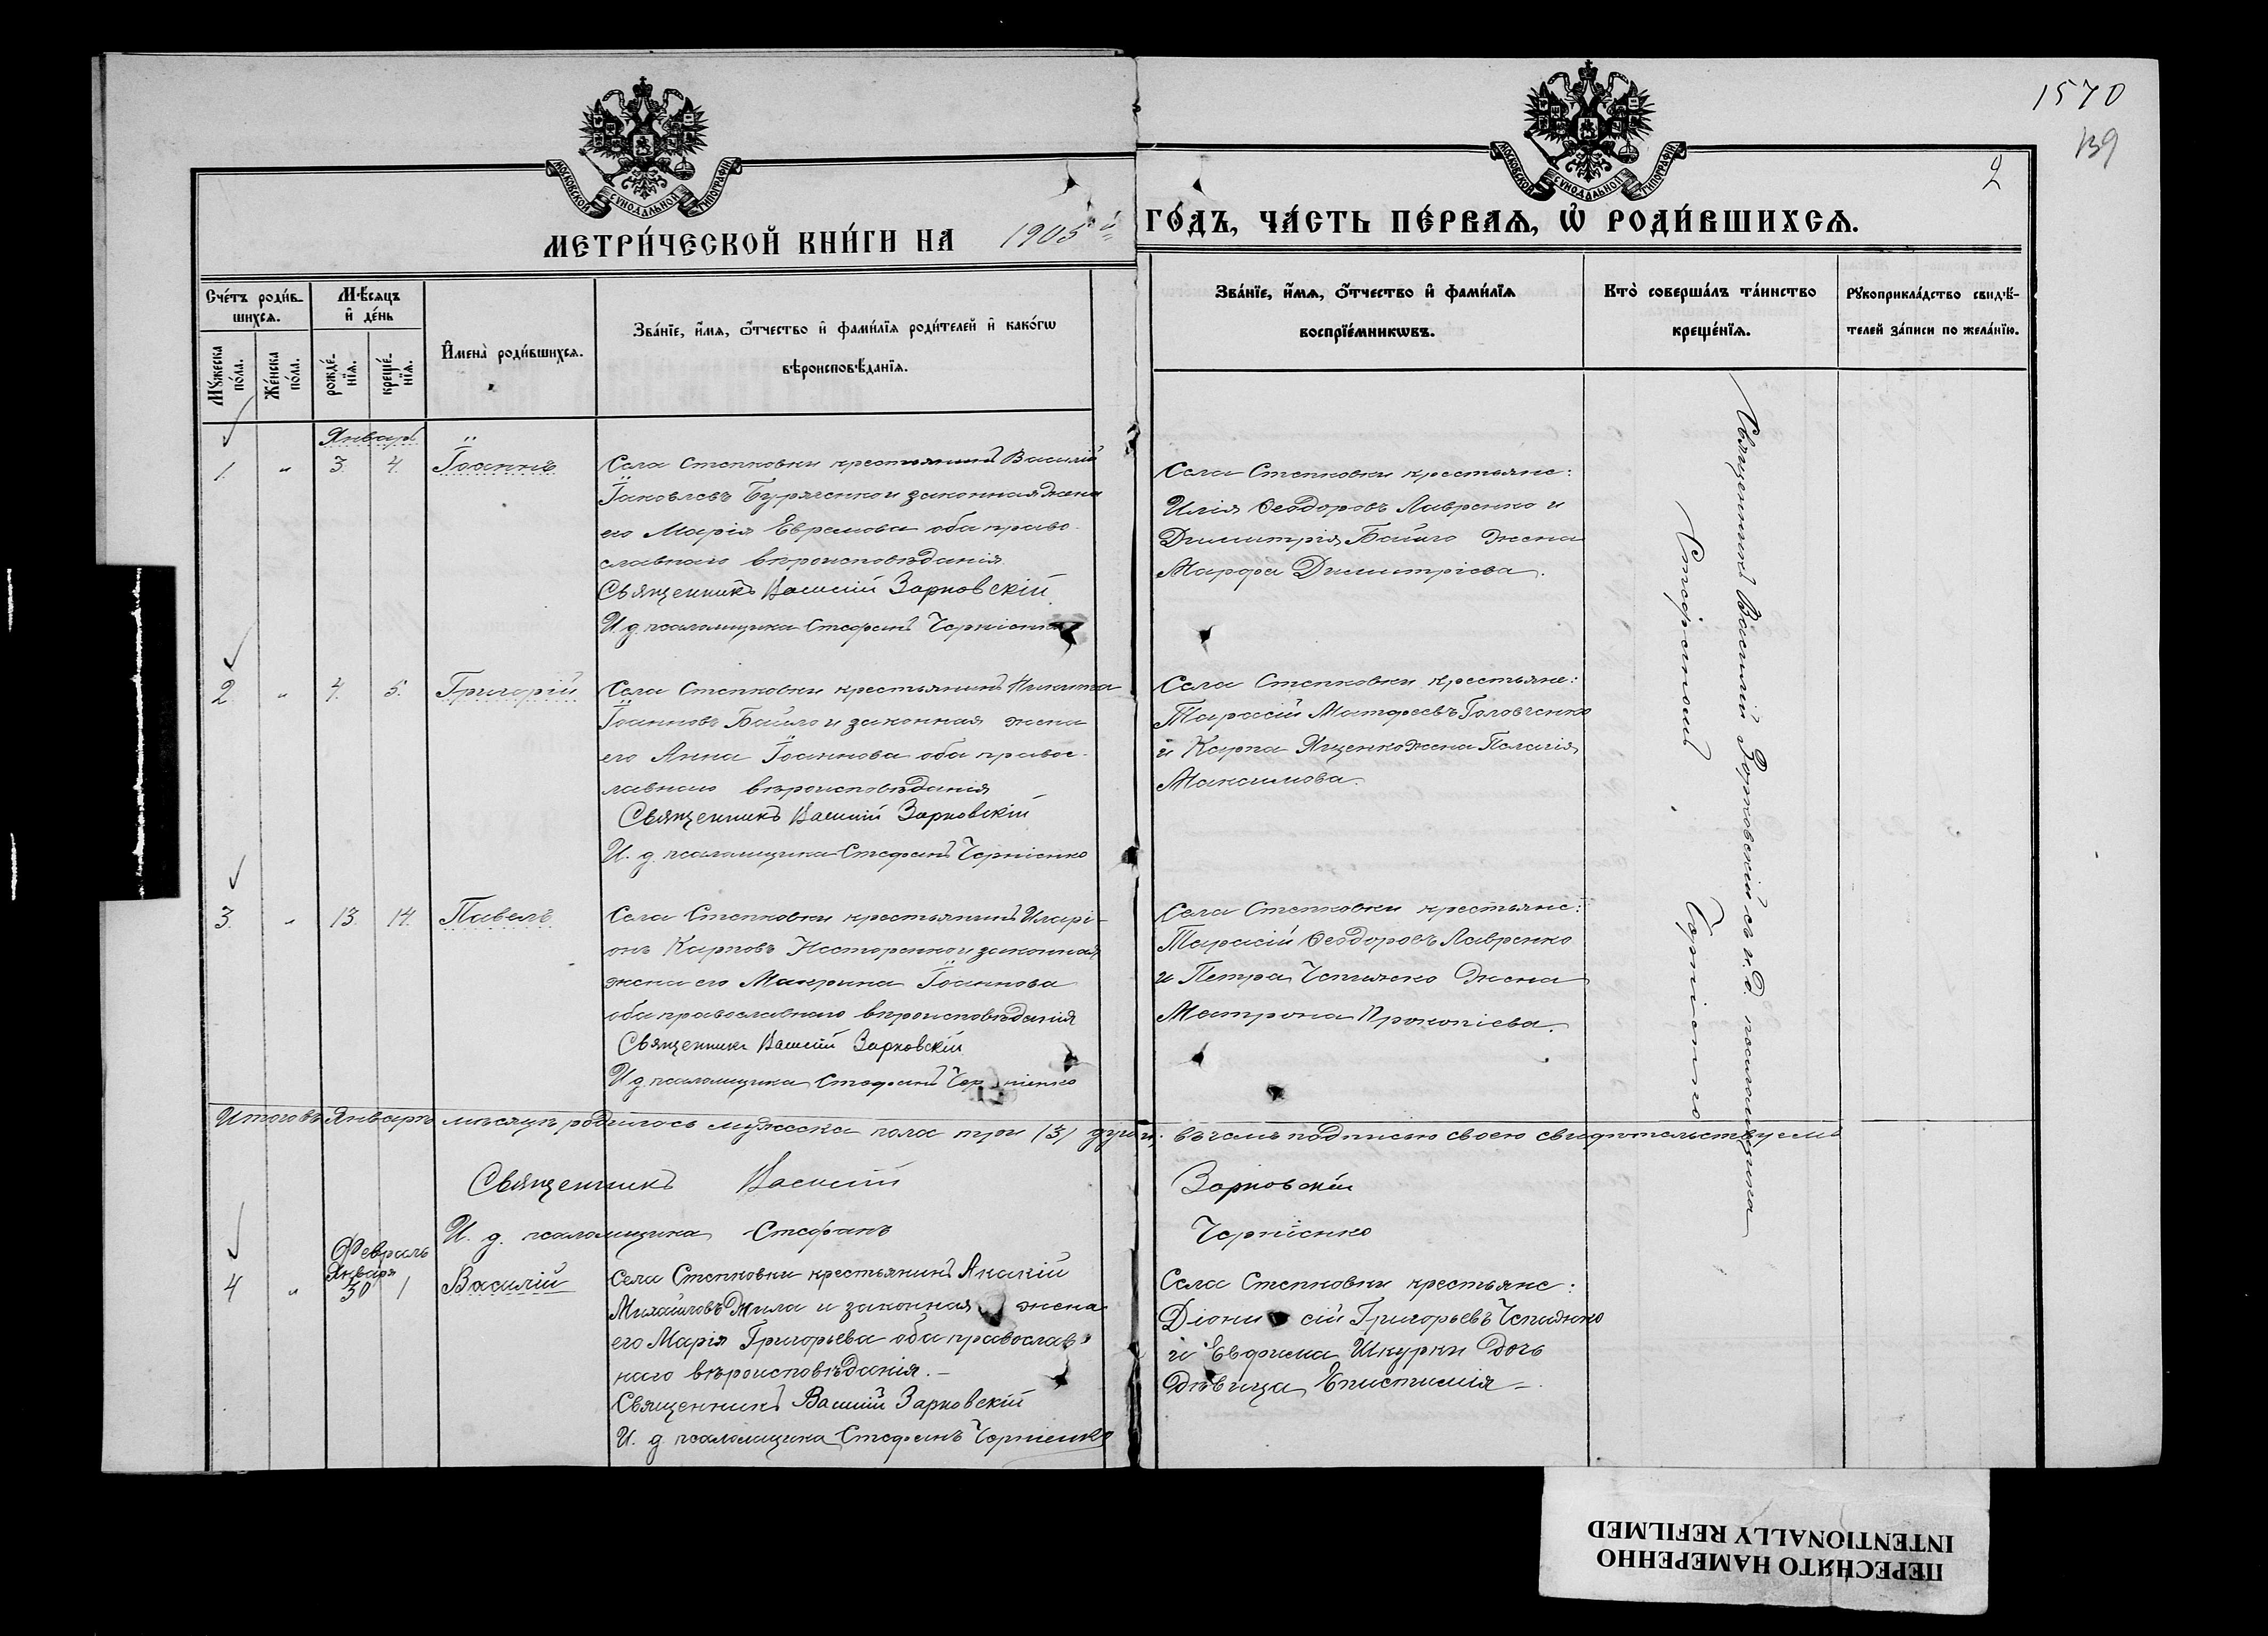 1570
139
2
МОСКОВСКОЙ СУНОДАЛЬНОЙ ТИПОГРАФІИ
МОСКОВСКОЙ СУНОДАЛЬНОЙ ТИПОГРАФІИ
МЕТРИ́ЧЕСКОЙ КНИ́ГИ НА 1905й ГО́ДЪ, ЧА́СТЬ ПЕ́РВАѦ, Ѡ҆ РОДИ́ВШИХСѦ.
Сче́тъ роди́в-
шихсѧ.
Мꙋжеска по́ла.
Же́нска по́ла.
Мѣ́сѧцъ
и҆ де́нь
рожде́-
нїѧ.
креще́-
нїѧ.
И҆мена̀ роди́вшихсѧ.
Зва́нїе, и҆́мѧ, ѻ҆́тчество и҆ фами́лїѧ роди́телей и҆ како́гѡ
вѣроисповѣ́данїѧ.
Зва́нїе, и҆́мѧ, ѻ҆́тчество и҆ фами́лїѧ
воспрїе́мникѡвъ.
Кто̀ соверша́лъ та́инство
креще́нїѧ.
Рꙋкоприкла́дство свидѣ́-
телей за́писи по жела́нїю.
Январь
1. " 3. 4. Іоаннъ
Села Степковки крестьянинъ Василій
Іаковлевъ Буряченко и законная жена
его Марія Евремова оба право-
славнаго вѣроисповѣданія.
Священникъ Василій Зарковскій
И. д. псаломщика Стефанъ Чернienко
Села Степковки крестьяне:
Илія Ѳеодоровъ Лавренко и
Димитрія Байло жена
Марфа Димитріева.
2 " 4. 5. Григорій
Села Степковки крестьянинъ Никита
Іоанновъ Байло и законная жена
его Анна Іоаннова оба правос-
лавнаго вѣроисповѣданія
Священникъ Василій Зарковскій
И. д. псаломщика Стефанъ Черніенко
Села Степковки крестьяне:
Тарасій Матфеевъ Головченко
и Карпа Яценко жена Пелагія
Максимова.
3. " 13. 14. Павелъ
Села Степковки крестьянинъ Иларі-
онъ Карповъ Несторенко и законная
жена его Макрина Іоаннова
оба православнаго вѣроисповѣданія
Священникъ Василій Зарковскій
И д. псаломщика Стефанъ Черніенко
Села Степковки крестьяне:
Тарасій Ѳеодоровъ Лавренко
и Петра Чепижко жена
Матрона Прокопіева.
Священникъ Василій Зарковскій съ и. д. псаломщика
Стефаномъ Черніенко
Итого въ Январѣ мѣсяцѣ родилось мужеска пола три (3) души, въ чемъ подписью своею свидѣтельствуемъ
Священникъ Василій Зарковскій
И. д. псаломщика Стефанъ Черніенко
Февраль
Январь
4 " 30 1 Василій
Села Степковки крестьянинъ Акакій
Михайловъ Джила и законная жена
его Марія Григорьева оба православ-
наго вѣроисповѣданія.-
Священникъ Василій Зарковскій
И. д. псаломщика Стефанъ Черніенко
Села Степковки крестьяне:
Діонисій Григорьевъ Чепижко
и Евфима Шкурки дочь
дѣвица Епистимія-.
ПЕРЕСНЯТО НАМЕРЕННО
INTENTIONALLY REFILMED